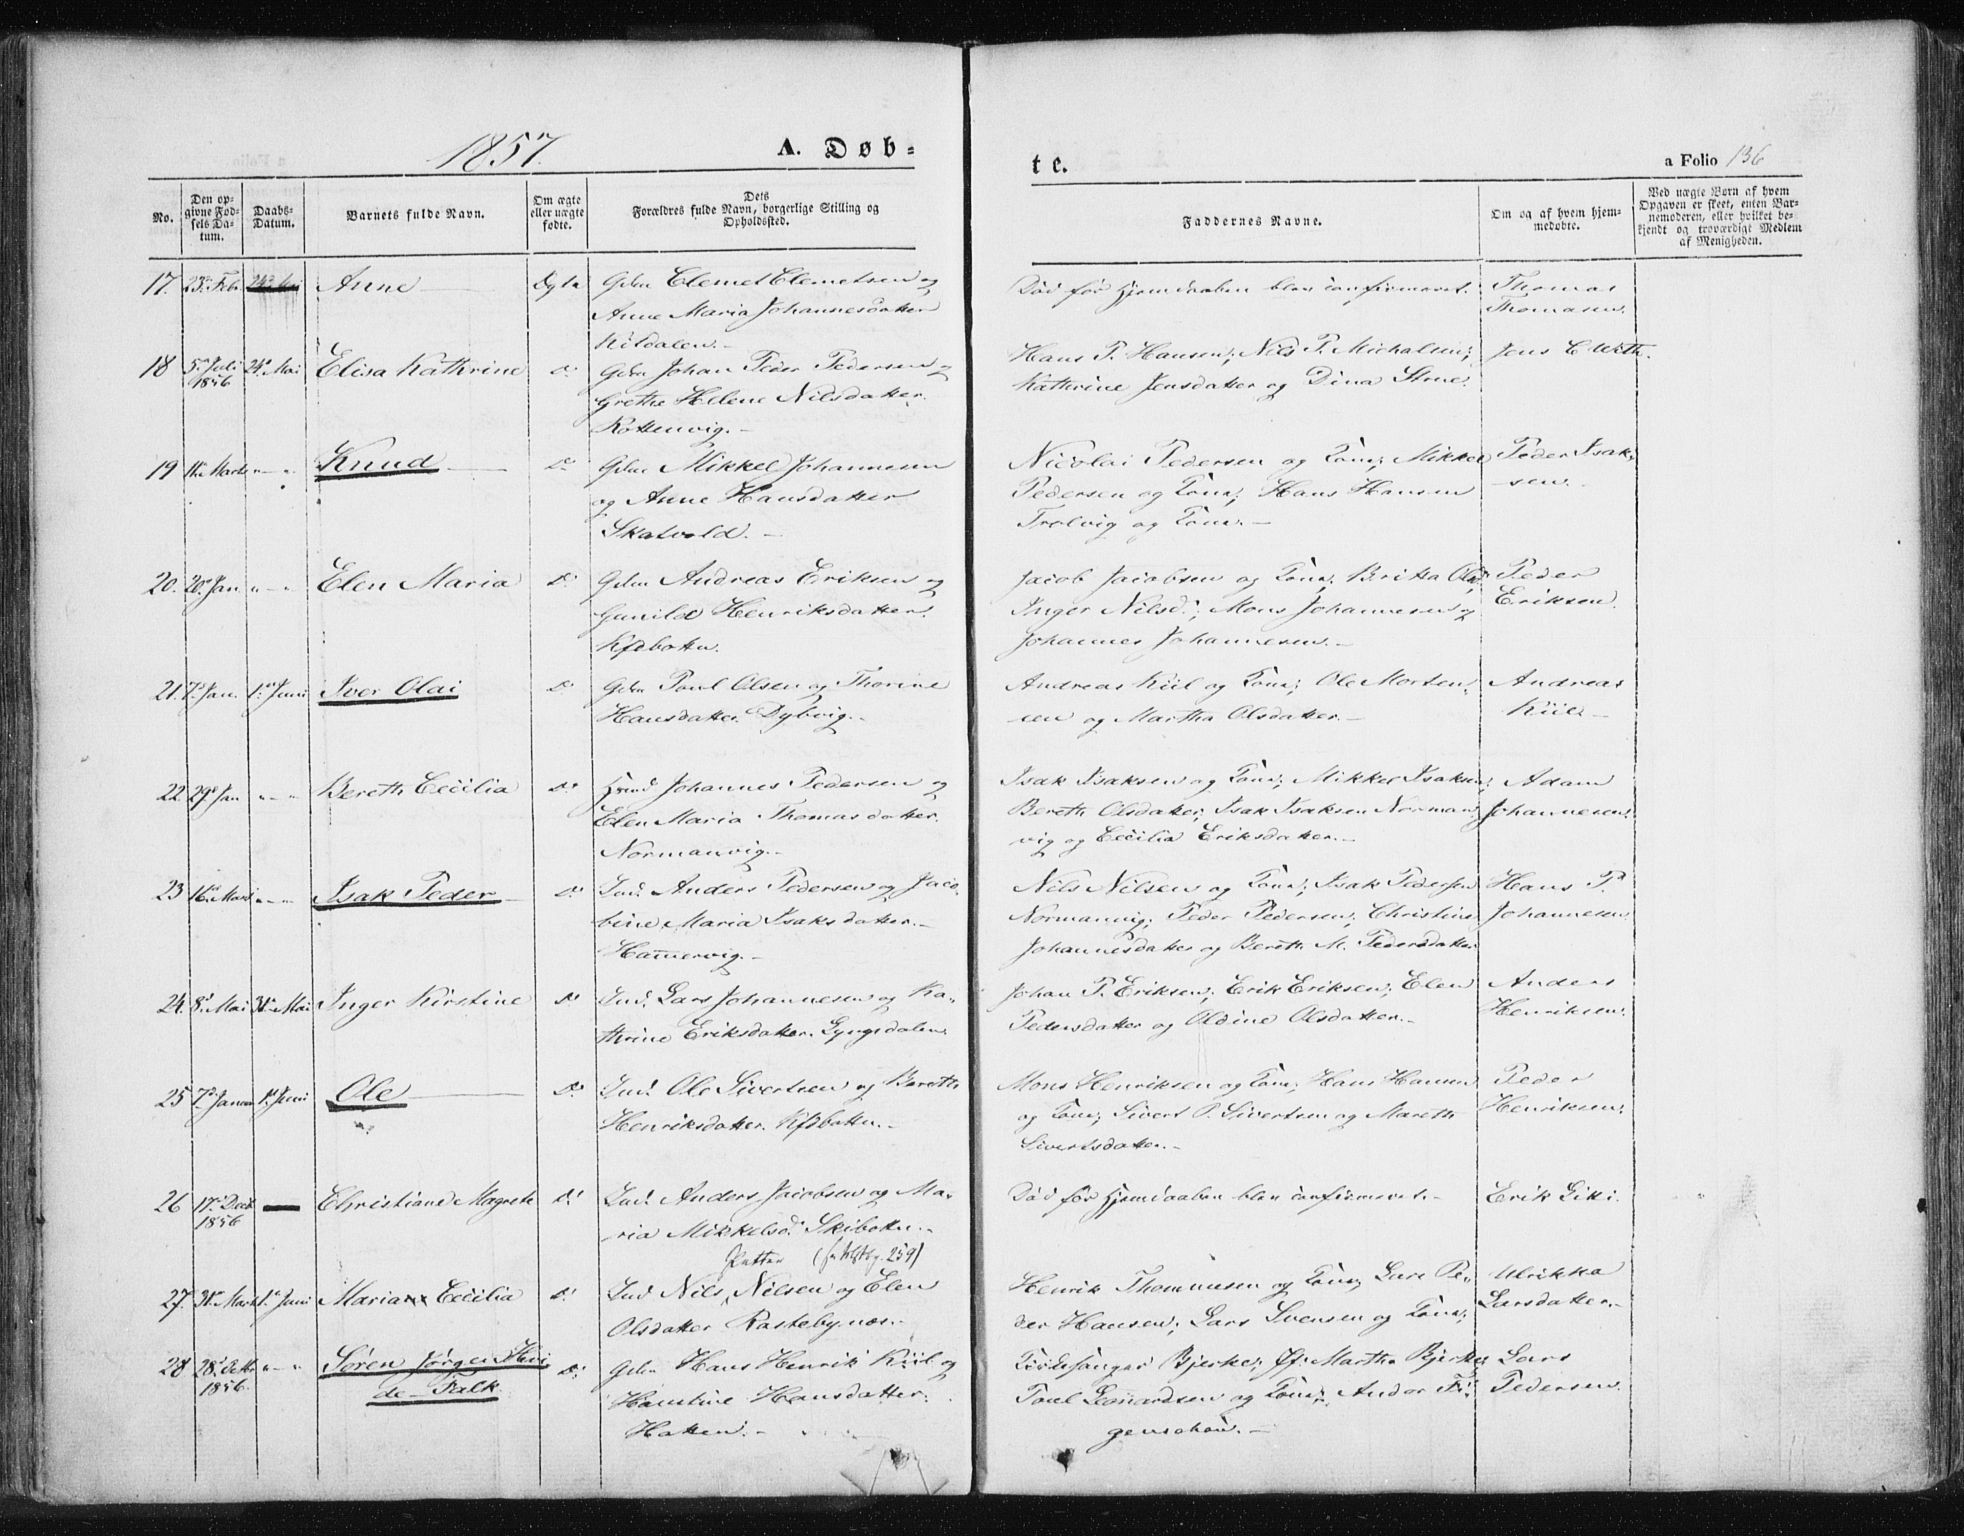 1857.
A. Døb-
te.
a Folio 136
No.
Den op-
givne Fød-
sels Da-
tum.
Daabs-
Datum.
Barnets fulde Navn.
Om ægte
eller uægte
fødte.
Dets
Forældres fulde Navn, borgerlige Stilling og
Opholdssted.
Faddernes Navne.
Om og af hvem hjem-
medøbte.
Ved uægte Børn af hvem
Opgaven er skeet, enten Bar-
nemoderen, eller hvilket be-
kjendt og troværdigt Medlem
af Menigheden.
17. 23de Feb. Anne Ægte Gdm Clemet Clemetsen og
Anne Maria Johannesdatter
Kildalen.
Død før Hjemdaaben blev confirmeret.
Thomas
Thomasen.
18 5te Juli 1856 24de Mai Elisa Kathrine Do Gdm Johan Peder Pedersen og
Grethe Helene Nilsdatter
Rottenvig.
Hans P. Hansen; Nils P. Michalsen;
Kathrine Jensdatter og Dina
Jens C
19 Marts " - " Knud Do Gdm Mikkel Johannesen
og Anne Hansdatter
Skatvold.
Nicolai Pedersen og Kone; Mikkel
Pedersen og Kone; Hans Hansen
Trolvig og Kone.
Peder Isak-
sen.
20. 20de Jan " - " Elen Maria Do Gdm Andreas Eriksen og
Gunild Henriksdatter
Kfdbotten.
Jacob Jacobsen og Kone; Britha Olsd.
Inger Nilsd.; Mons Johannesen og
Johannes Johannesen.
Peder
Eriksen.
21. 7de Jan. 1ste Juni Iver Olai Do Gdm Poul Olsen og Thorine
Hansdatter Dybvig.
Andreas Kiil og Kone; Ole Morten-
sen og Martha Olsdatter.
Andreas
Kiil.
22 29de Jan " - " Bereth Cecilia Do Huusm Johannes Pedersen og
Elen Maria Thomasdatter
Normanvig.
Isak Isaksen og Kone; Mikkel Isaksen;
Bereth Olsdatter; Isak Isaksen Norman-
vig og Cecilia Eriksdatter.
Adam
Johannesen.
23 16de Marts " - " Isak Peder Do Ind. Anders Pedersen og Jaco-
bine Maria Isaksdatter.
Hamervig.
Nils Nilsen og Kone; Isak Pedersen
Normanvig; Peder Pedersen; Christine
Johannesdatter og Bereth M. Pedersdatter
Hans P.
Johannesen.
24. 8de Mai 31te Mai Inger Kirstine Do Ind. Lars Johannesen og Ka-
thrine Eriksdatter. Lyngsdalen.
Johan P. Eriksen; Erik Eriksen; Elen
Pedersdatter og Oldine Olsdatter.
Anders
Henriksen.
25 7de Januar 1ste Juni Ole Do Ind. Ole Sivertsen og Bereth
Henriksdatter. Kfdbotten.
Mons Henriksen og Kone; Hans Hansen
og Kone; Sivert P. Sivertsen og Mareth
Sivertsdatter.
Peder
Henriksen.
26 17de Decb 1856 Christiane Magrete Do Ind. Anders Jacobsen og Ma-
ria Mikkelsd. Skibotten.
Død før Hjemdaaben blev confirmeret.
Erik Siki.
27. 31te Marts 1ste Juni Maria Cecilia Do Ind Nils Nilsen og Elen
Olsdatter Rastebynæs.
Henrik Thommesen og Kone; Lars Pe-
der Hansen; Lars Svensen og Kone;
Ulrikka
Larsdatter.
28 28de Octbr 1856 " - " Søren Jørgen
Falk. Do Gdm Hans Henrik Kiil og
Hanstine Hansdatter
Hatten.
Kirkesanger Bjerke; Jf. Martha Bjerke;
Poul Leonardsen og Kone; Andor Fi-
genschou.
Lars
Pedersen.